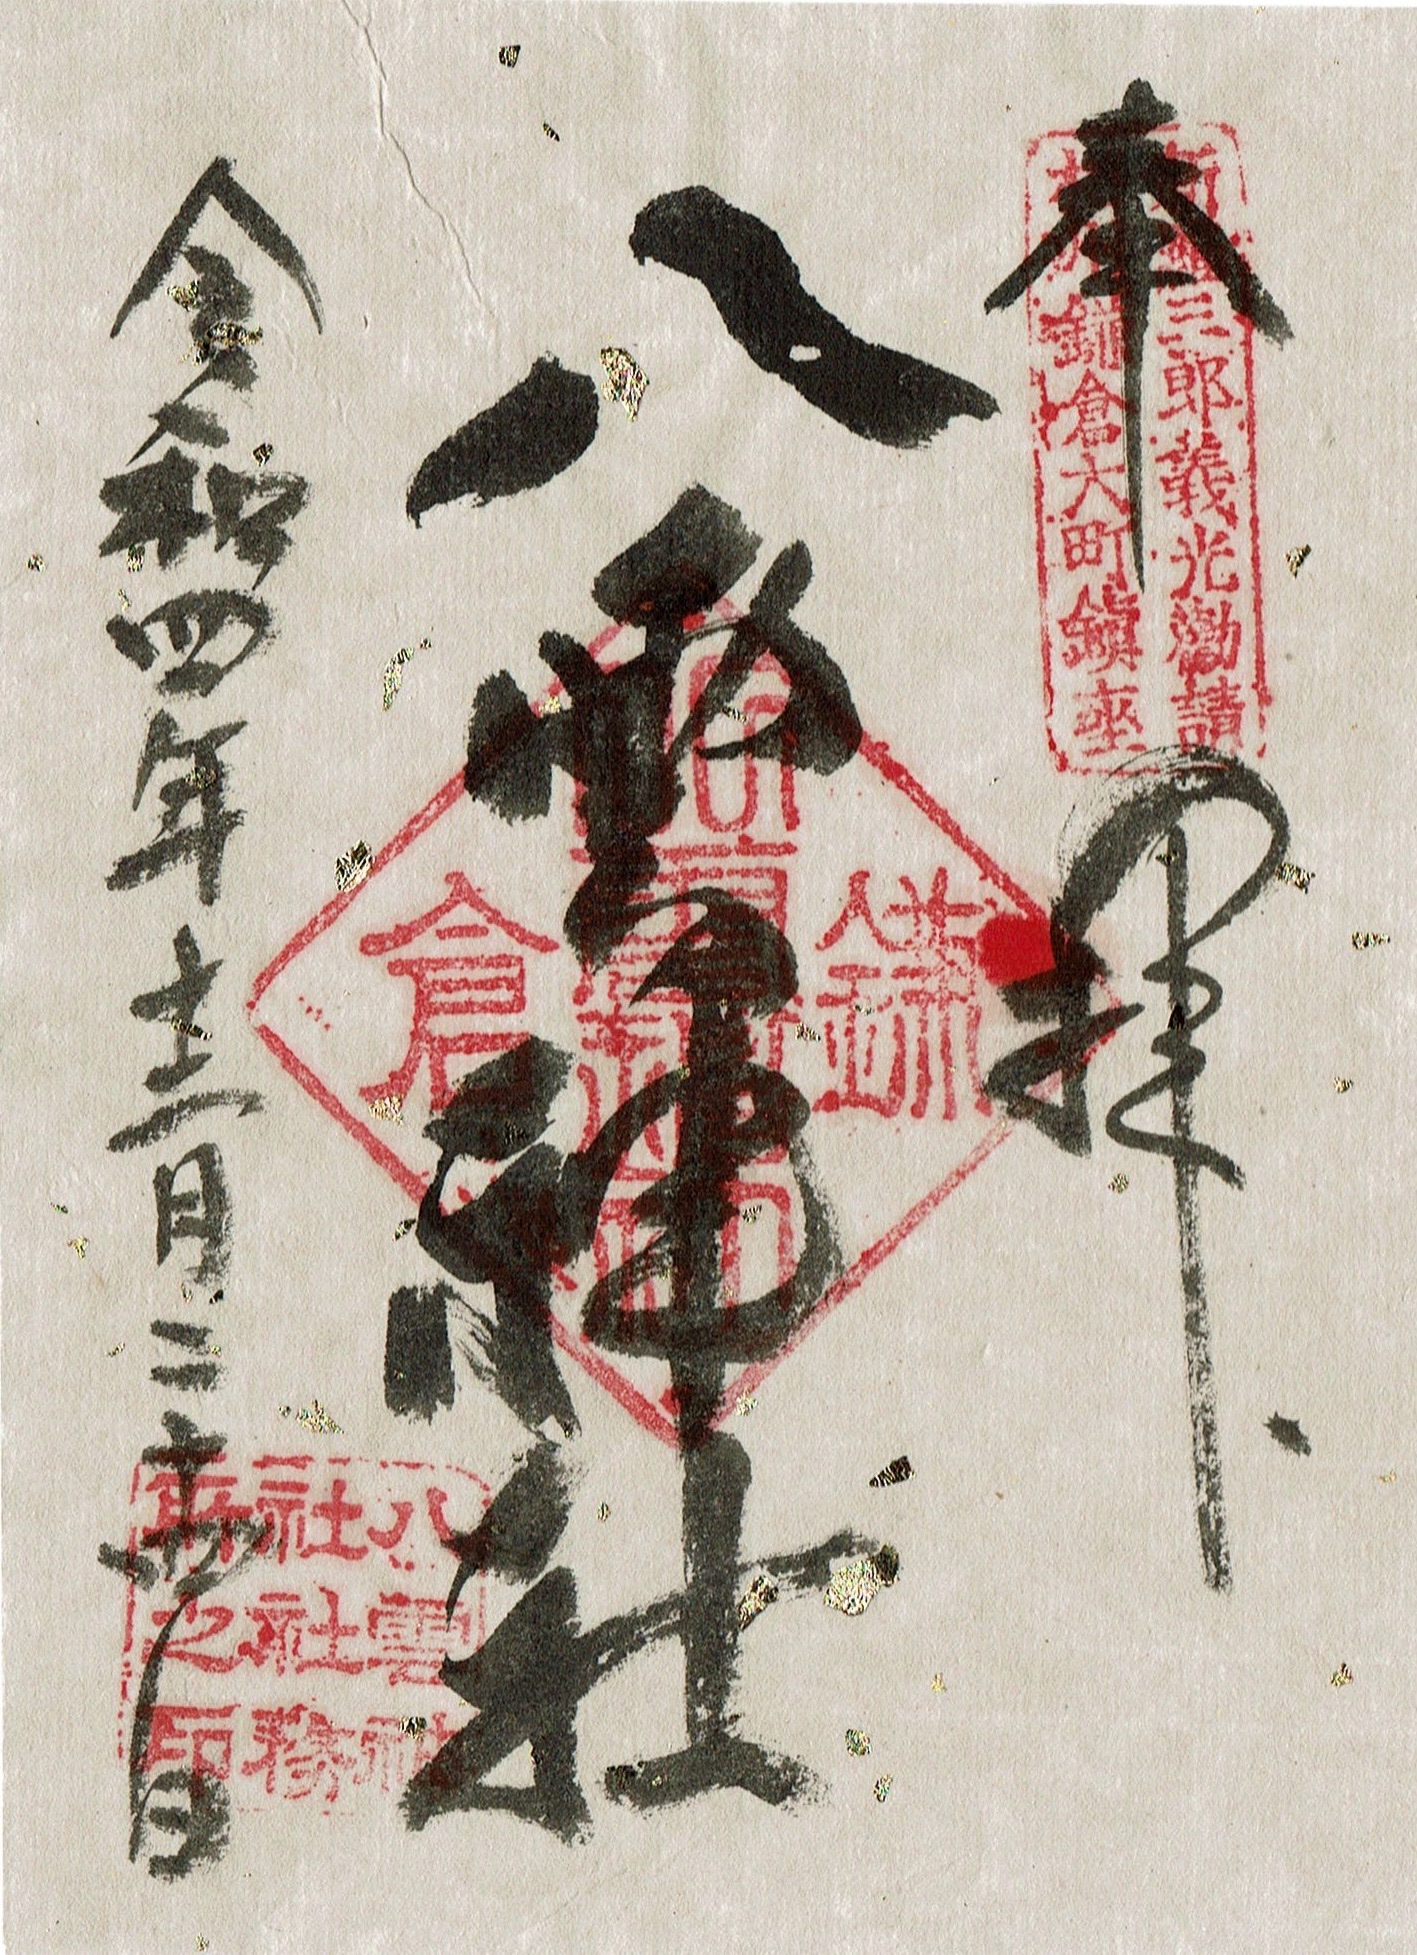 奉拝
新羅三郎義光勧請
相州鎌倉大町鎮座
八雲神社
鎌倉
八雲神
社社務
所之印
令和四年十二月二十四日